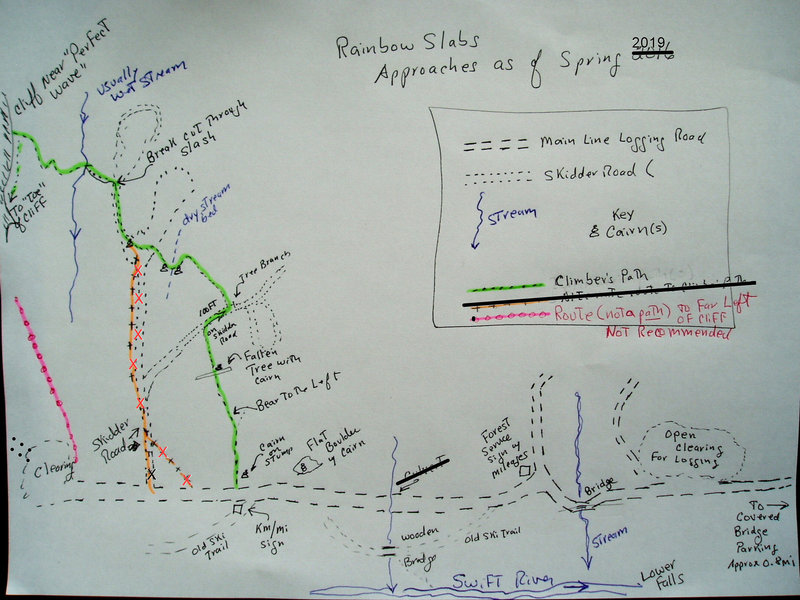 Rainbow Slabs
Approaches as of Spring 2019
Cliff Near "Perfect
Wave"
Usually
Wet Stream
Break Cut Through
Slash
To "Toe"
of Cliff
dry stream
bed
Tree Branch
100FT
on
Skidder
Road
Fallen
Tree with
cairn
Bear To the Left
Skidder
Road
Clearing
Cairn
on
Stump
Flat
Boulder
w Cairn
Km/mi
sign
Old Ski
Trail
wooden
Bridge
Old Ski Trail
Forest
Service
sign w
mileages
Bridge
Stream
Open
Clearing
For Logging
To
Covered
Bridge
Parking
Approx 0.8mi
Swift River
Lower
Falls
Main Line Logging Road
Skidder Road (
Stream
Key
Cairn(s)
Climber's Path
Route (not a path) to Far Left
of Cliff
Not Recommended